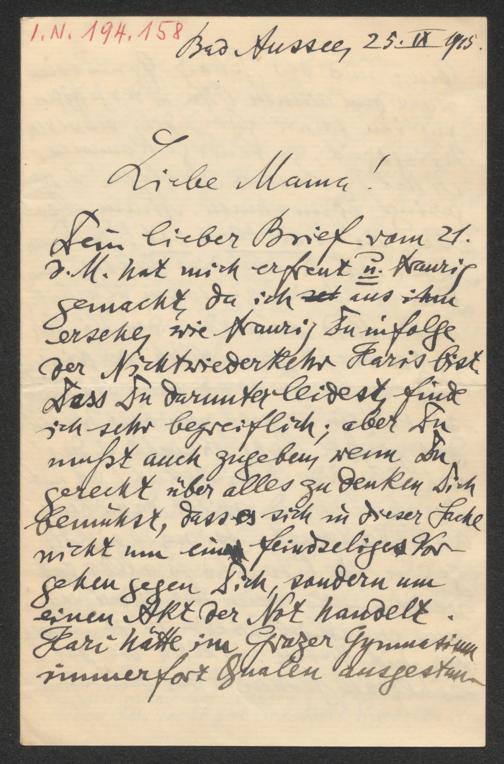 I.N. 194.158
Bad Aussee, 25. IX 1915.
Liebe Mama!
Dein lieber Brief vom 21.
d. M. hat mich erfreut u. traurig
gemacht, da ich aus ihm
ersehe, wie traurig Du infolge
der Nichtwiederkehr Haris bist
Dass Du darunter leidest, finde
ich sehr begreiflich; aber Du
mußt auch zugeben, wenn Du
gerecht über alles zu denken Dich
bemühst, dass es sich in dieser Sache
nicht um ein feindseliges Vor-
gehen gegen Dich, sondern um
einen Akt der Not handelt.
Hari hätte im Grazer Gymnasium
immerfort Qualen ausgestan-